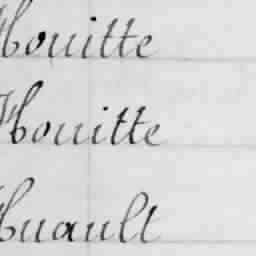 Houitte
Houitte
Huault